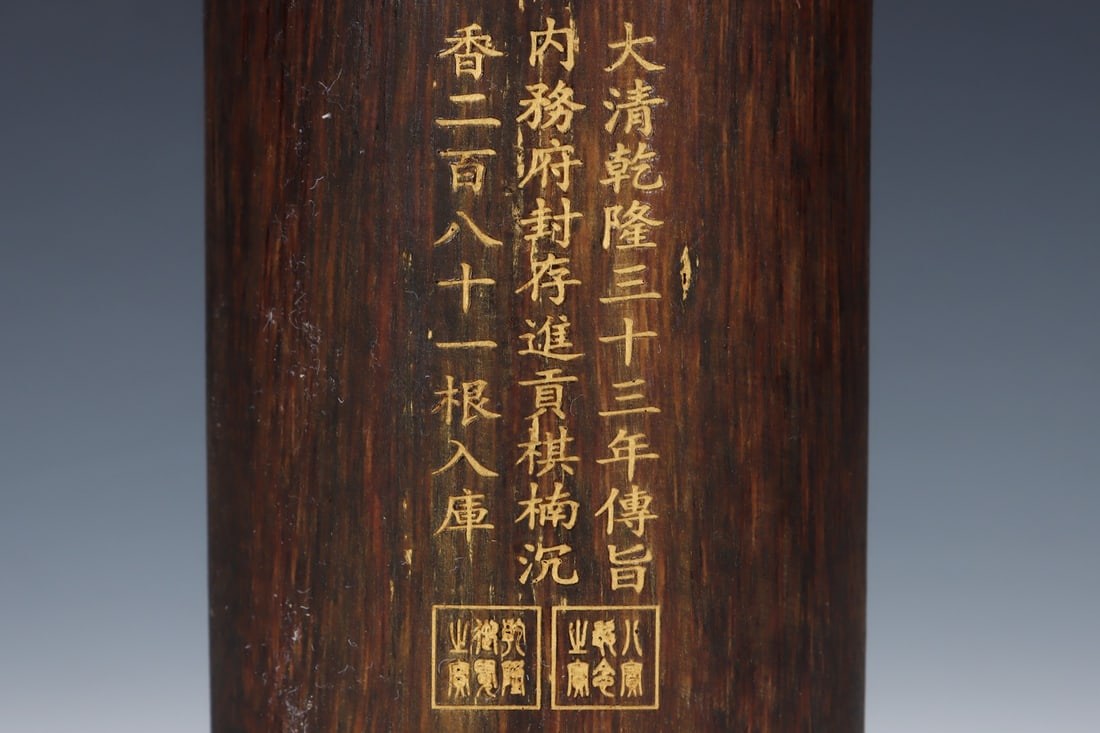 大清乾隆三十三年傳旨
内務府封存進貢棋楠沉
香二百八十一根入庫
乾隆御覽之寶